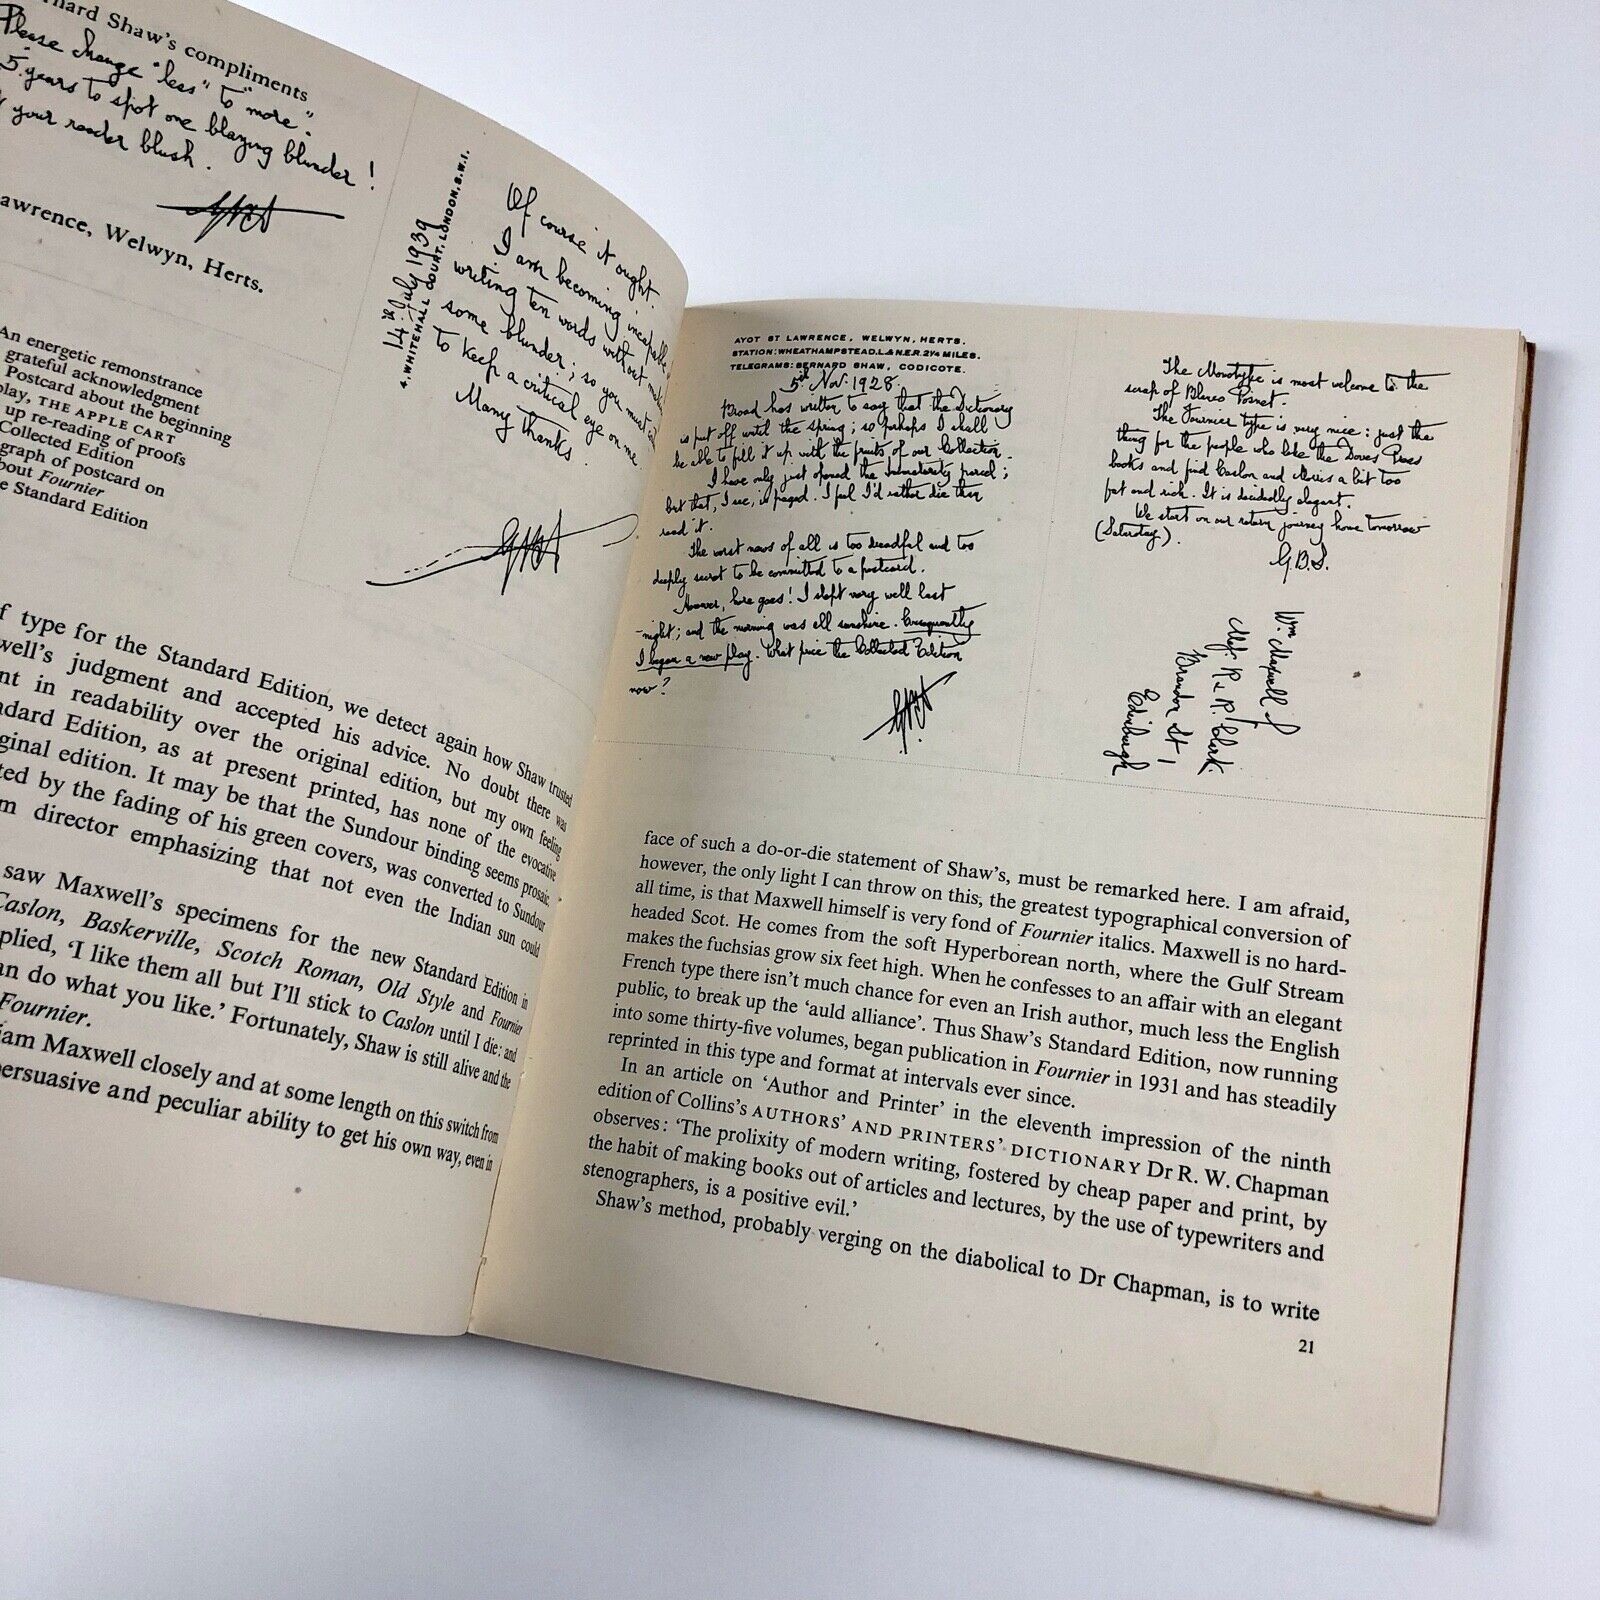 rnard Shaw's compliments
Please change "less" to "more".
5 years to spot one blazing blunder!
your reader blush.
awrence, Welwyn, Herts.
An energetic remonstrance
grateful acknowledgment
Postcard about the beginning
play, THE APPLE CART
up re-reading of proofs
Collected Edition
graph of postcard on
bout Fournier
e Standard Edition
14th July 1939
4, WHITEHALL COURT, LONDON, S.W.1.
Of course it ought.
I am becoming incapable
writing ten words without
some blunder; so you must
to keep a critical eye on me
Many thanks
f type for the Standard Edition, we detect again how Shaw trusted
well's judgment and accepted his advice. No doubt there was
nt in readability over the original edition, but my own feeling
ndard Edition, as at present printed, has none of the evocative
ginal edition. It may be that the Sundour binding seems prosaic.
ted by the fading of his green covers, was converted to Sundour
m director emphasizing that not even the Indian sun could
saw Maxwell's specimens for the new Standard Edition in
Caslon, Baskerville, Scotch Roman, Old Style and Fournier
plied, 'I like them all but I'll stick to Caslon until I die: and
an do what you like.' Fortunately, Shaw is still alive and the
Fournier.
iam Maxwell closely and at some length on this switch from
persuasive and peculiar ability to get his own way, even in
AYOT ST LAWRENCE, WELWYN, HERTS.
STATION: WHEATHAMPSTEAD. L. & N.E.R. 2¼ MILES.
TELEGRAMS: BERNARD SHAW, CODICOTE.
5th Nov. 1928.
has written to say that the Dictionary
is put off until the spring; so perhaps I shall
be able to fill it up with the fruits of our Collection.
I have only just opened the Immaturity parcel;
but that, I see, is paged. I feel I'd rather die than
read it.
The worst news of all is too dreadful and too
deeply secret to be committed to a postcard.
However, here goes! I slept very well last
night; and the morning was all sunshine. Consequently
I began a new play. What price the Collected Edition
now?
The Monotype is most welcome to the
scrap of Blanco Posnet.
The Fournier type is very nice: just the
thing for the people who like the Doves Press
books and find Caslon and Morris a bit too
fat and rich. It is decidedly elegant.
We start on our return journey home tomorrow
(Saturday).
G.B.S.
Wm. Maxwell
R & R. Clark
Brandon St
Edinburgh
face of such a do-or-die statement of Shaw's, must be remarked here. I am afraid,
however, the only light I can throw on this, the greatest typographical conversion of
all time, is that Maxwell himself is very fond of Fournier italics. Maxwell is no hard-
headed Scot. He comes from the soft Hyperborean north, where the Gulf Stream
makes the fuchsias grow six feet high. When he confesses to an affair with an elegant
French type there isn't much chance for even an Irish author, much less the English
public, to break up the 'auld alliance'. Thus Shaw's Standard Edition, now running
into some thirty-five volumes, began publication in Fournier in 1931 and has steadily
reprinted in this type and format at intervals ever since.
In an article on 'Author and Printer' in the eleventh impression of the ninth
edition of Collins's AUTHORS' AND PRINTERS' DICTIONARY Dr R. W. Chapman
observes: 'The prolixity of modern writing, fostered by cheap paper and print, by
the habit of making books out of articles and lectures, by the use of typewriters and
stenographers, is a positive evil.'
Shaw's method, probably verging on the diabolical to Dr Chapman, is to write
21